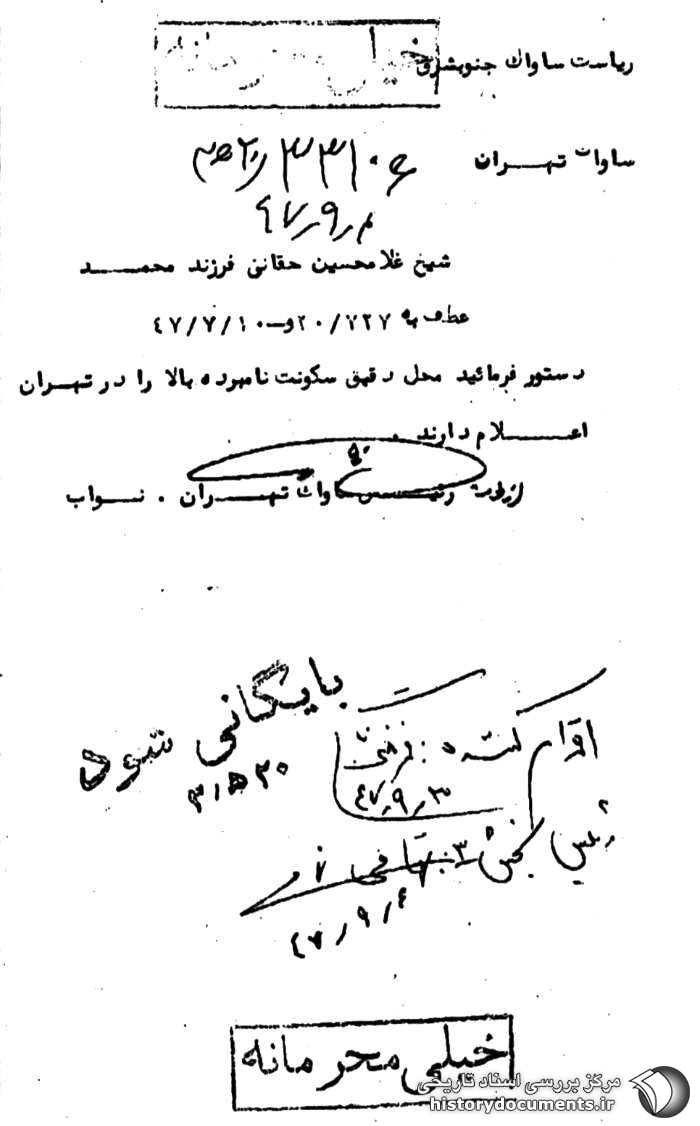 خیلی محرمانه
ریاست ساواک جنوبشرق
ساواک تهـــران
۳۳۱۰۶
۴۷٫۹٫
شیخ غلامحسین حقانی فرزند محمـــــد
عطف به ۲۰/۷۲۷و-۴۷/۷/۱۰
دستور فرمائید محل دقیق سکونت نامبرده بالا را در تهــران
اعـــــلام دارند .
ازطرف رئیـــس ساواک تهـــران . نــواب
بایگانی شود
۳۱۵۲۰
اقدام کننده :
۴۷٫۹٫۳
رئیس بخش ۳:
۴۷٫۹٫۴
خیلی محرمانه
مرکز بررسی اسناد تاریخی
historydocuments.ir